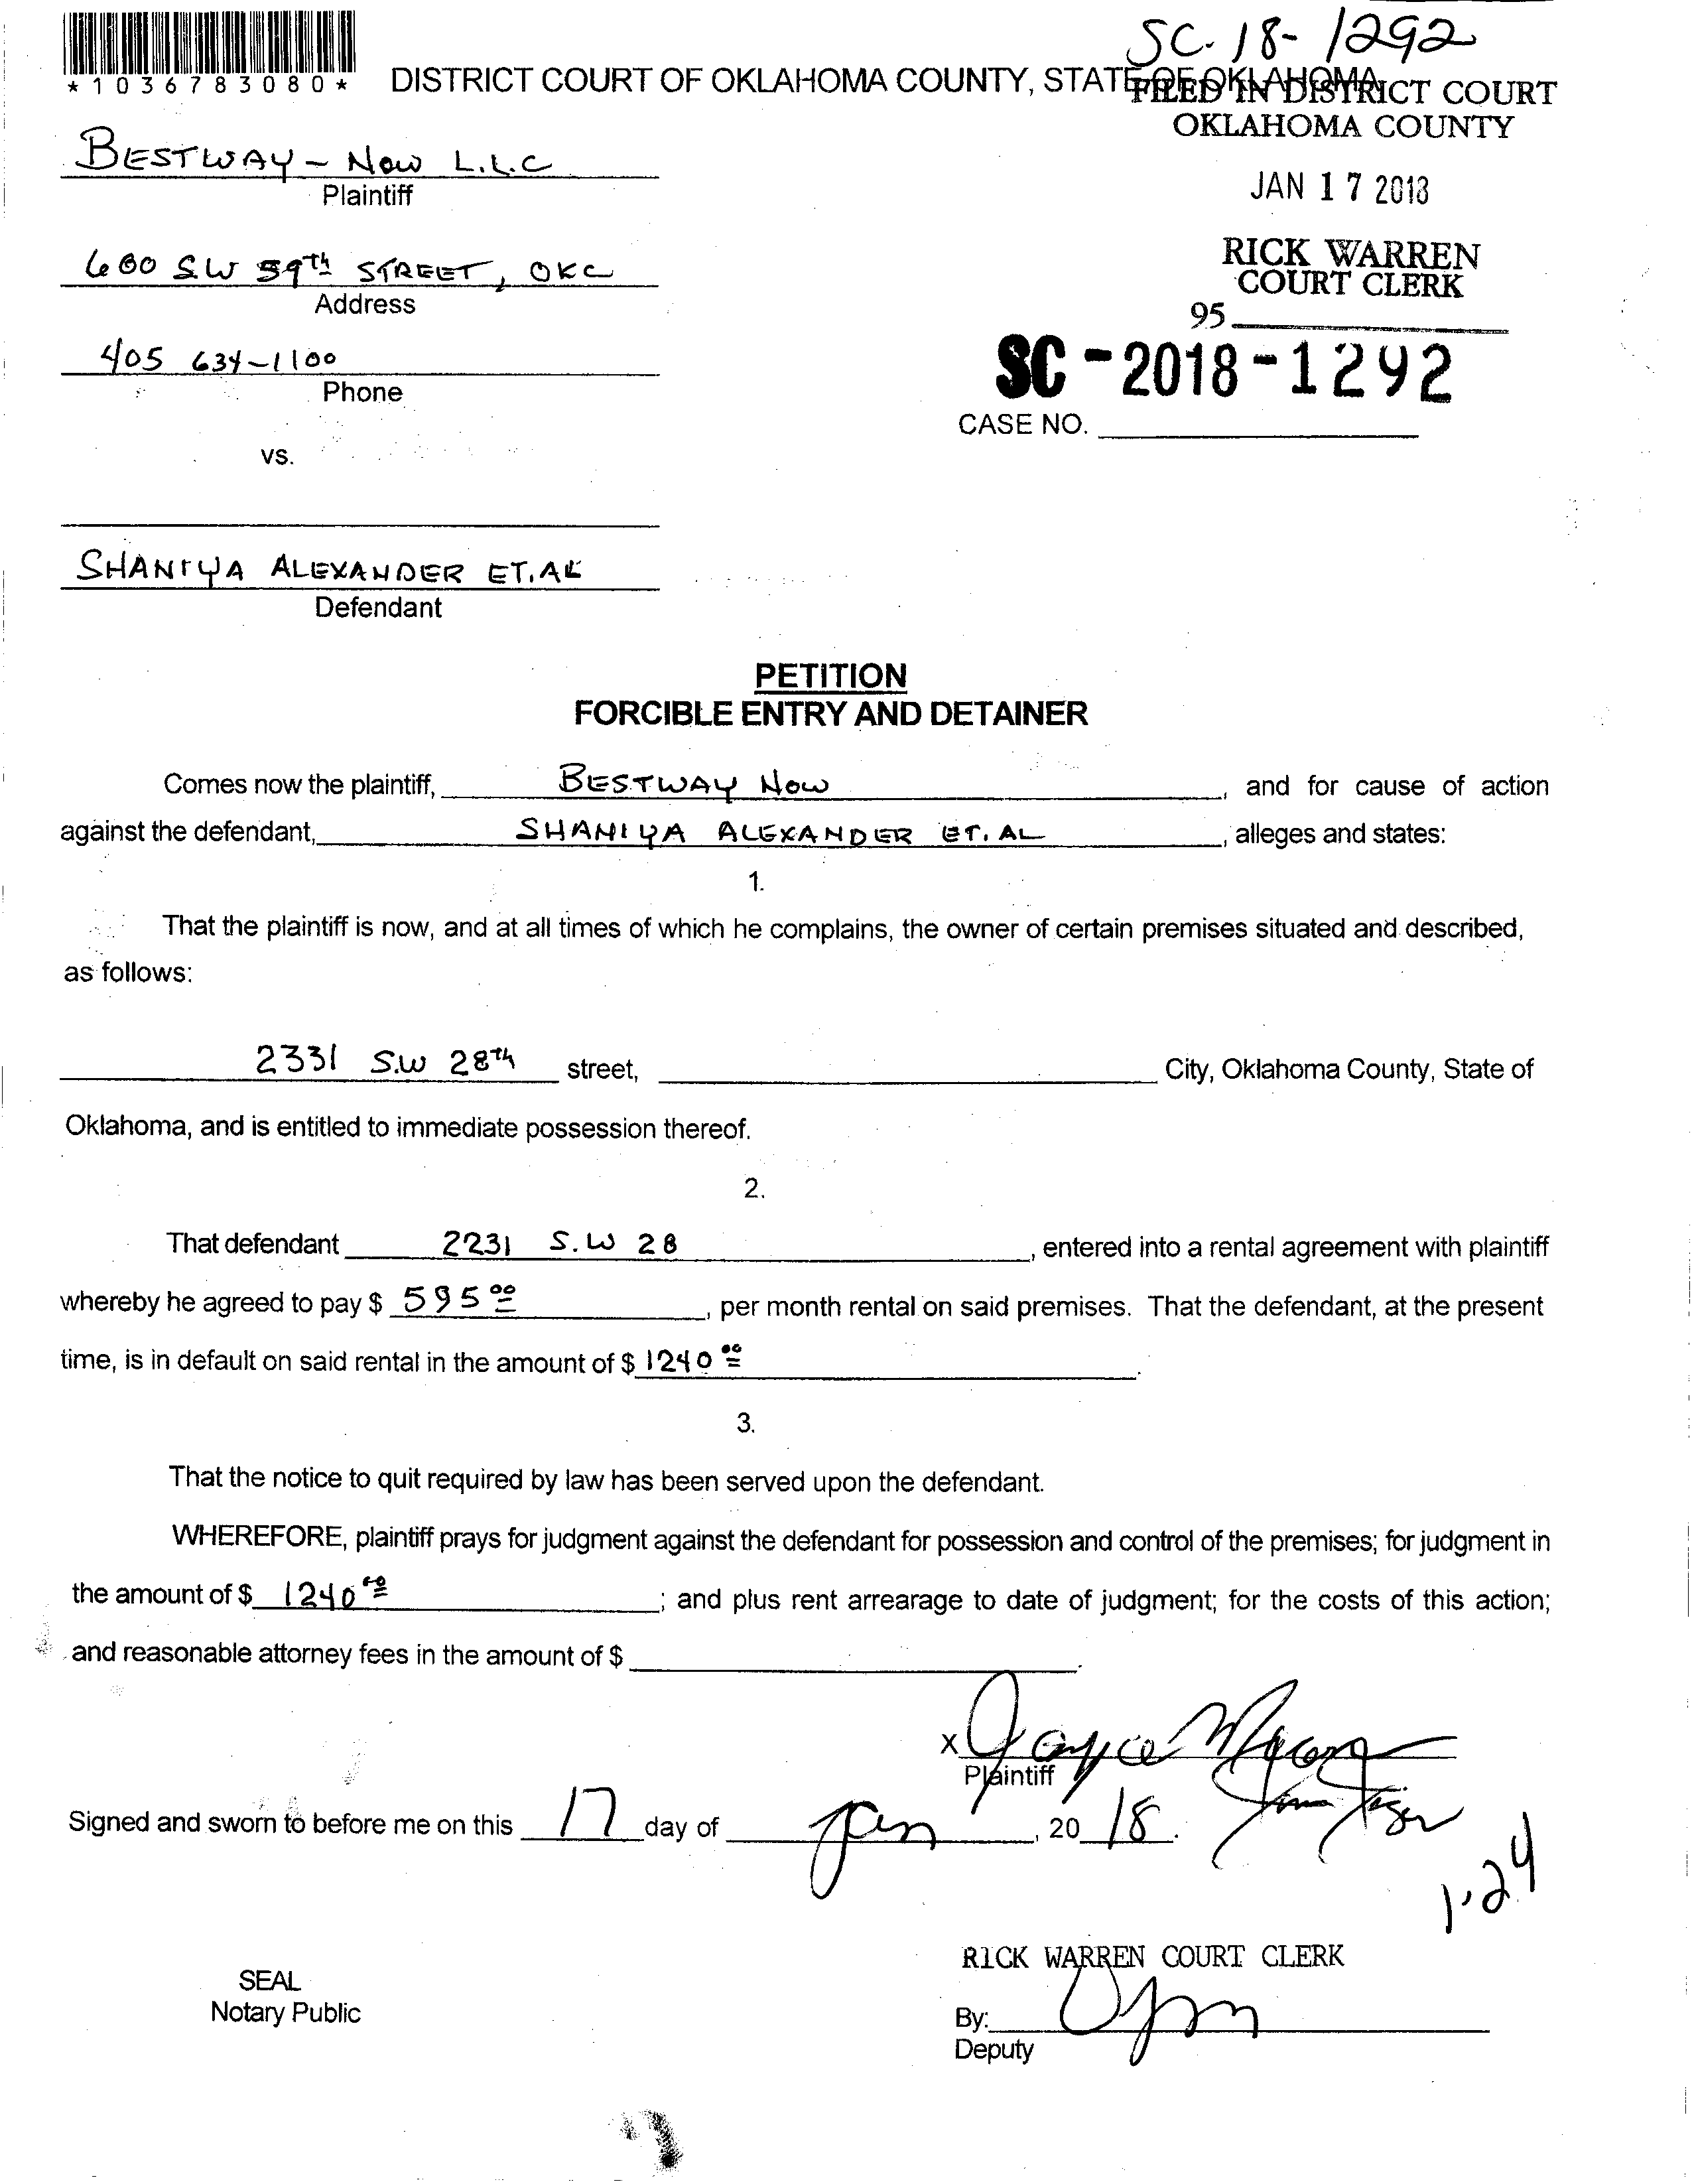 SC-18-1292
*1036783080*
DISTRICT COURT OF OKLAHOMA COUNTY, STATE OF OKLAHOMA
FILED IN DISTRICT COURT
OKLAHOMA COUNTY
BESTWAY - NOW L.L.C
Plaintiff
JAN 17 2018
RICK WARREN
COURT CLERK
600 SW 59th STREET, OKC
Address
95
405 634-1100
Phone
SC-2018-1292
CASE NO.
vs.
SHANIYA ALEXANDER ET.AL
Defendant
PETITION
FORCIBLE ENTRY AND DETAINER
Comes now the plaintiff, BESTWAY NOW, and for cause of action
against the defendant, SHANIYA ALEXANDER ET.AL, alleges and states:
1.
That the plaintiff is now, and at all times of which he complains, the owner of certain premises situated and described,
as follows:
2331 S.W 28th street, City, Oklahoma County, State of
Oklahoma, and is entitled to immediate possession thereof.
2.
That defendant 2231 S.W 28, entered into a rental agreement with plaintiff
whereby he agreed to pay $ 595 00, per month rental on said premises. That the defendant, at the present
time, is in default on said rental in the amount of $ 1240 00.
3.
That the notice to quit required by law has been served upon the defendant.
WHEREFORE, plaintiff prays for judgment against the defendant for possession and control of the premises; for judgment in
the amount of $ 1240 00; and plus rent arrearage to date of judgment; for the costs of this action;
and reasonable attorney fees in the amount of $ .
X
Plaintiff
Signed and sworn to before me on this 17 day of Jan, 20 18.
1.24
RICK WARREN COURT CLERK
SEAL
Notary Public
By:
Deputy